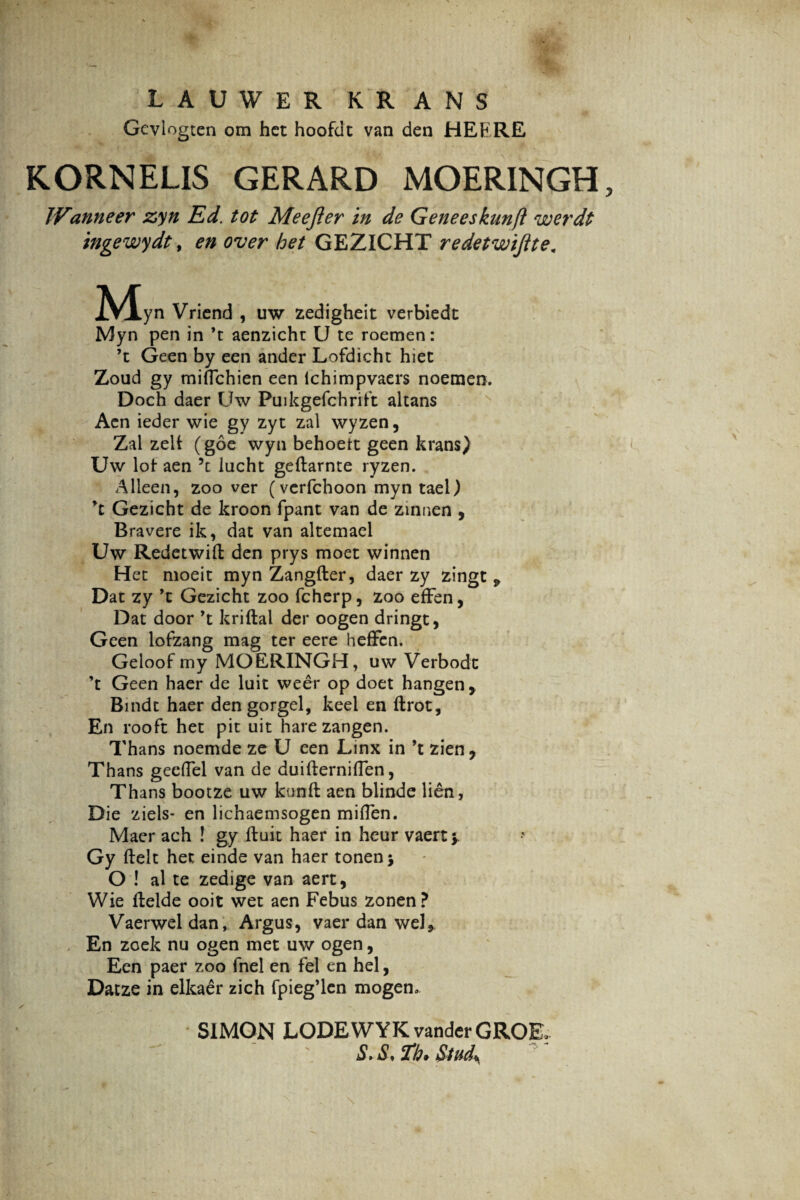 LAUWERKRANS
Gevlogten om het hoofdt van den HEERE
KORNELIS GERARD MOERINGH,
Wanneer zyn Ed. tot Meeſter in de Geneeskunſt werdt
ingewydt, en over het GEZICHT redetwiſtte.
Myn Vriend , uw zedigheit verbiedt
Myn pen in ’t aenzicht U te roemen:
’t Geen by een ander Lofdicht hiet
Zoud gy miſſchien een ſchimpvaers noemen.
Doch daer Uw Puikgeſchrift altans
Aen ieder wie gy zyt zal wyzen,
Zal zelf (gôe wyn behoeft geen krans)
Uw lof aen ’t lucht geſtarnte ryzen.
Alleen, zoo ver (verſchoon myn tael)
’t Gezicht de kroon ſpant van de zinnen ,
Bravere ik, dat van altemael
Uw Redetwiſt den prys moet winnen
Het moeit myn Zangſter, daer zy zingt,
Dat zy ’t Gezicht zoo ſcherp, zoo effen,
Dat door ’t kriſtal der oogen dringt,
Geen lofzang mag ter eere heffen.
Geloof my MOERINGH, uw Verbodt
’t Geen haer de luit weêr op doet hangen,
Bindt haer den gorgel, keel en ſtrot,
En rooft het pit uit hare zangen.
Thans noemde ze U een Linx in ’t zien,
Thans geeſſel van de duiſterniſſen,
Thans bootze uw kunſt aen blinde liên,
Die ziels- en lichaemsogen miſſen.
Maer ach ! gy ſtuit haer in heur vaert;
Gy ſtelt het einde van haer tonen;
O ! al te zedige van aert,
Wie ſtelde ooit wet aen Febus zonen?
Vaerwel dan, Argus, vaer dan wel,
En zoek nu ogen met uw ogen,
Een paer zoo ſnel en fel en hel,
Datze in elkaêr zich ſpieg’len mogen.
SIMON LODEWYK vander GROE.
S. S. Th. Stud.